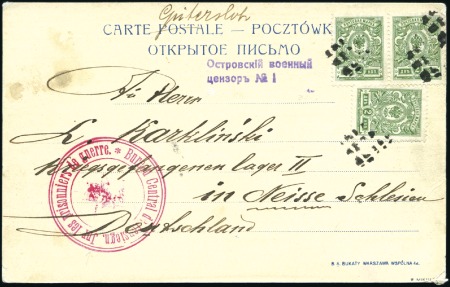 Gütersloh
CARTE POSTALE – POCZTÓWK
ОТКРЫТОЕ ПИСЬМО
Островскiй военный
цензоръ № 1
Herrn
L. Karkliński
Kriegsgefangenen lager II
in Neisse Schlesien
Deutschland
Bureau Central d
les prisonniers de guerre. *
B-CI BUKATY WARSZAWA WSPÓLNA